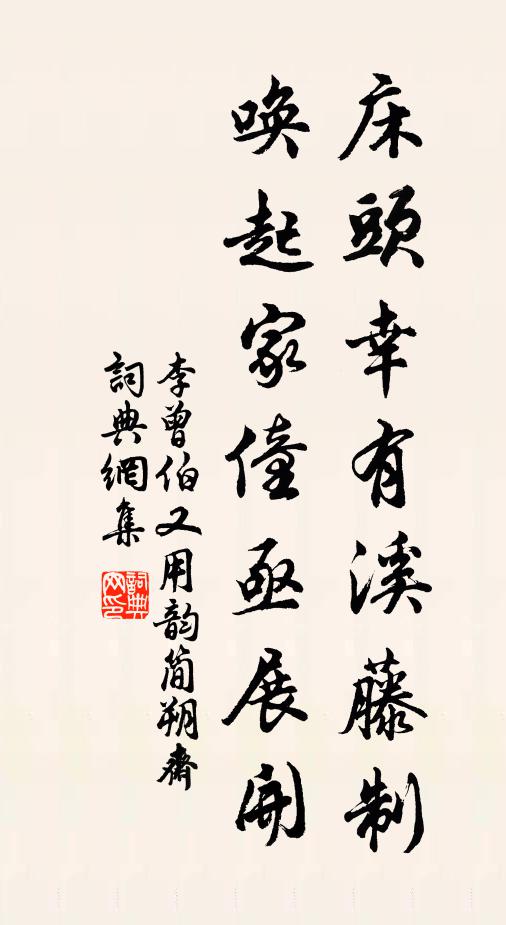 床頭幸有溪藤制
喚起家僮亟展開
李曾伯又用韵簡朔齋
詞典網集
詞典網印